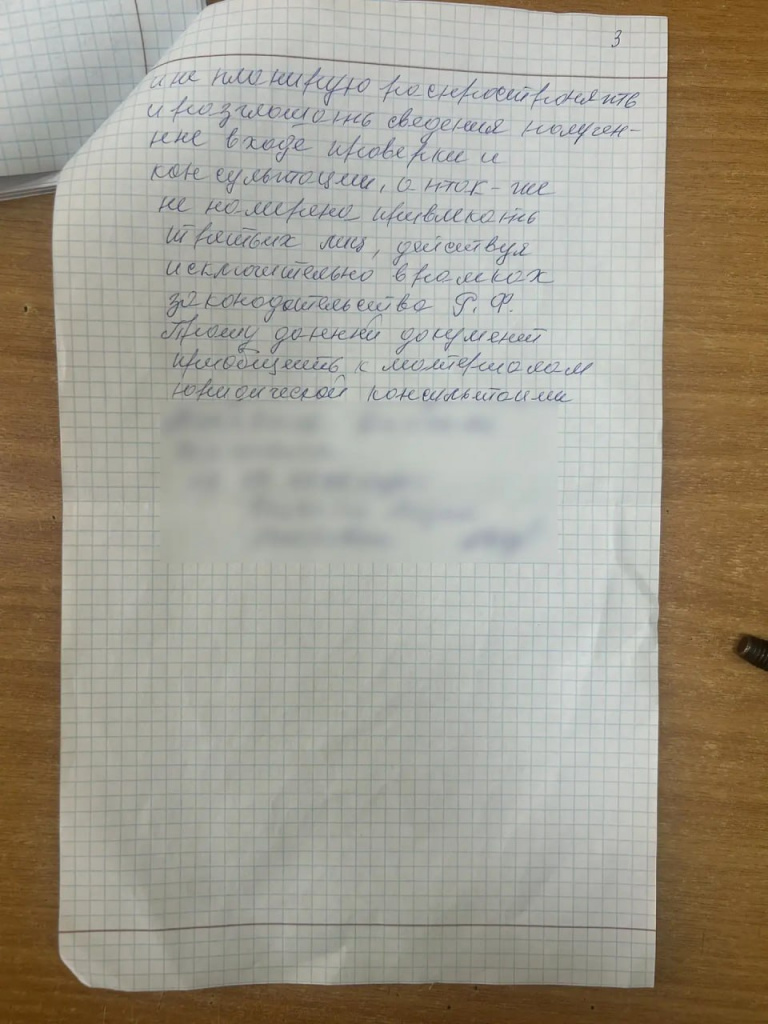 3
и не планирую распространять
и разглашать сведения получен-
ние в ходе проверки и
консультации, а так-же
не намерена привлекать
третьих лиц, действуя
исключительно в рамках
законодательства Р.Ф.
Прошу данний документ
приобщить к материалам
юридической консультации